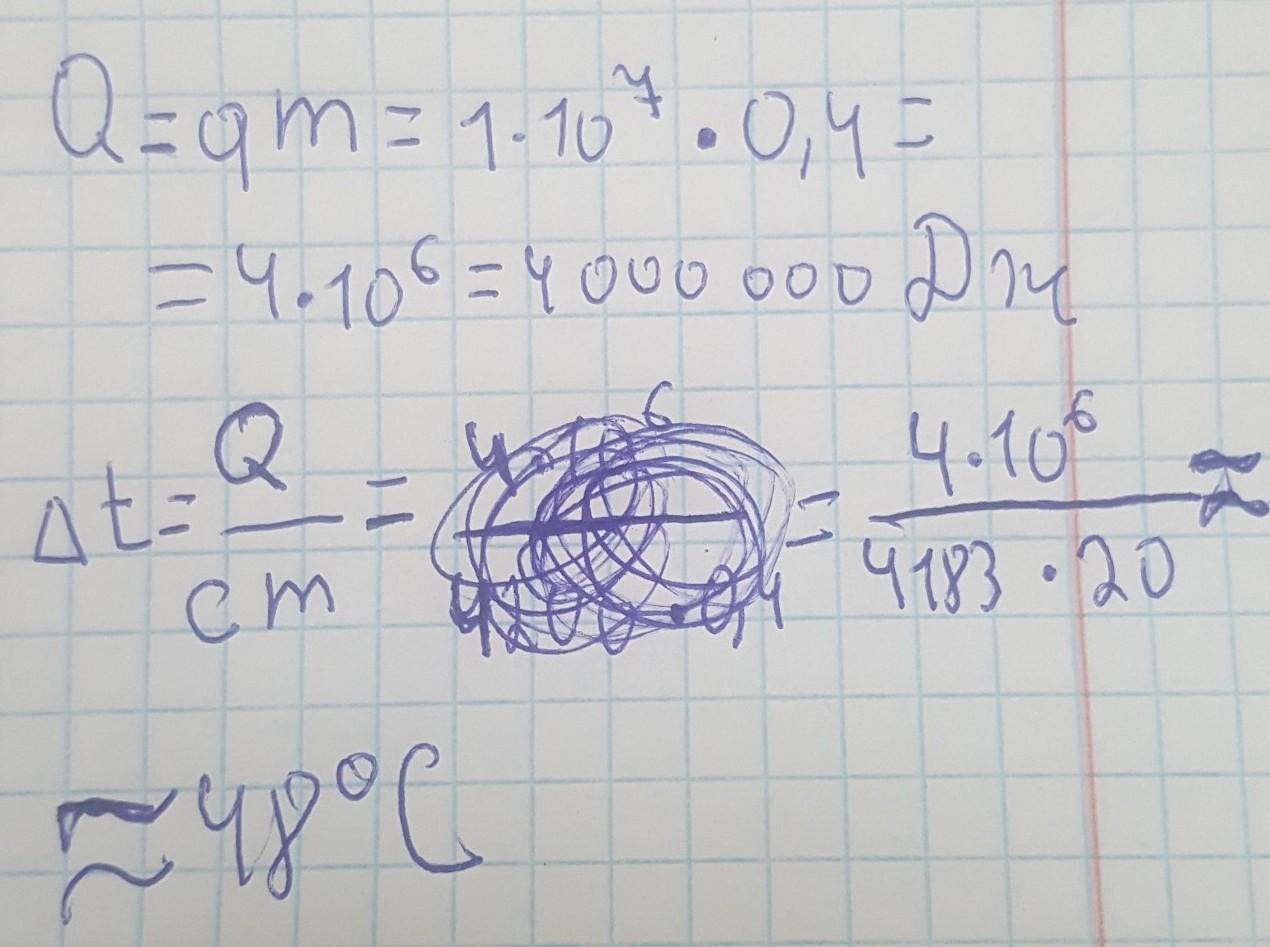 Q = qm = 1·10⁷ · 0,4 =
= 4·10⁶ = 4 000 000 Дж
Δt = Q/cm = = 4·10⁶/4183·20 ≈
≈ 48°C